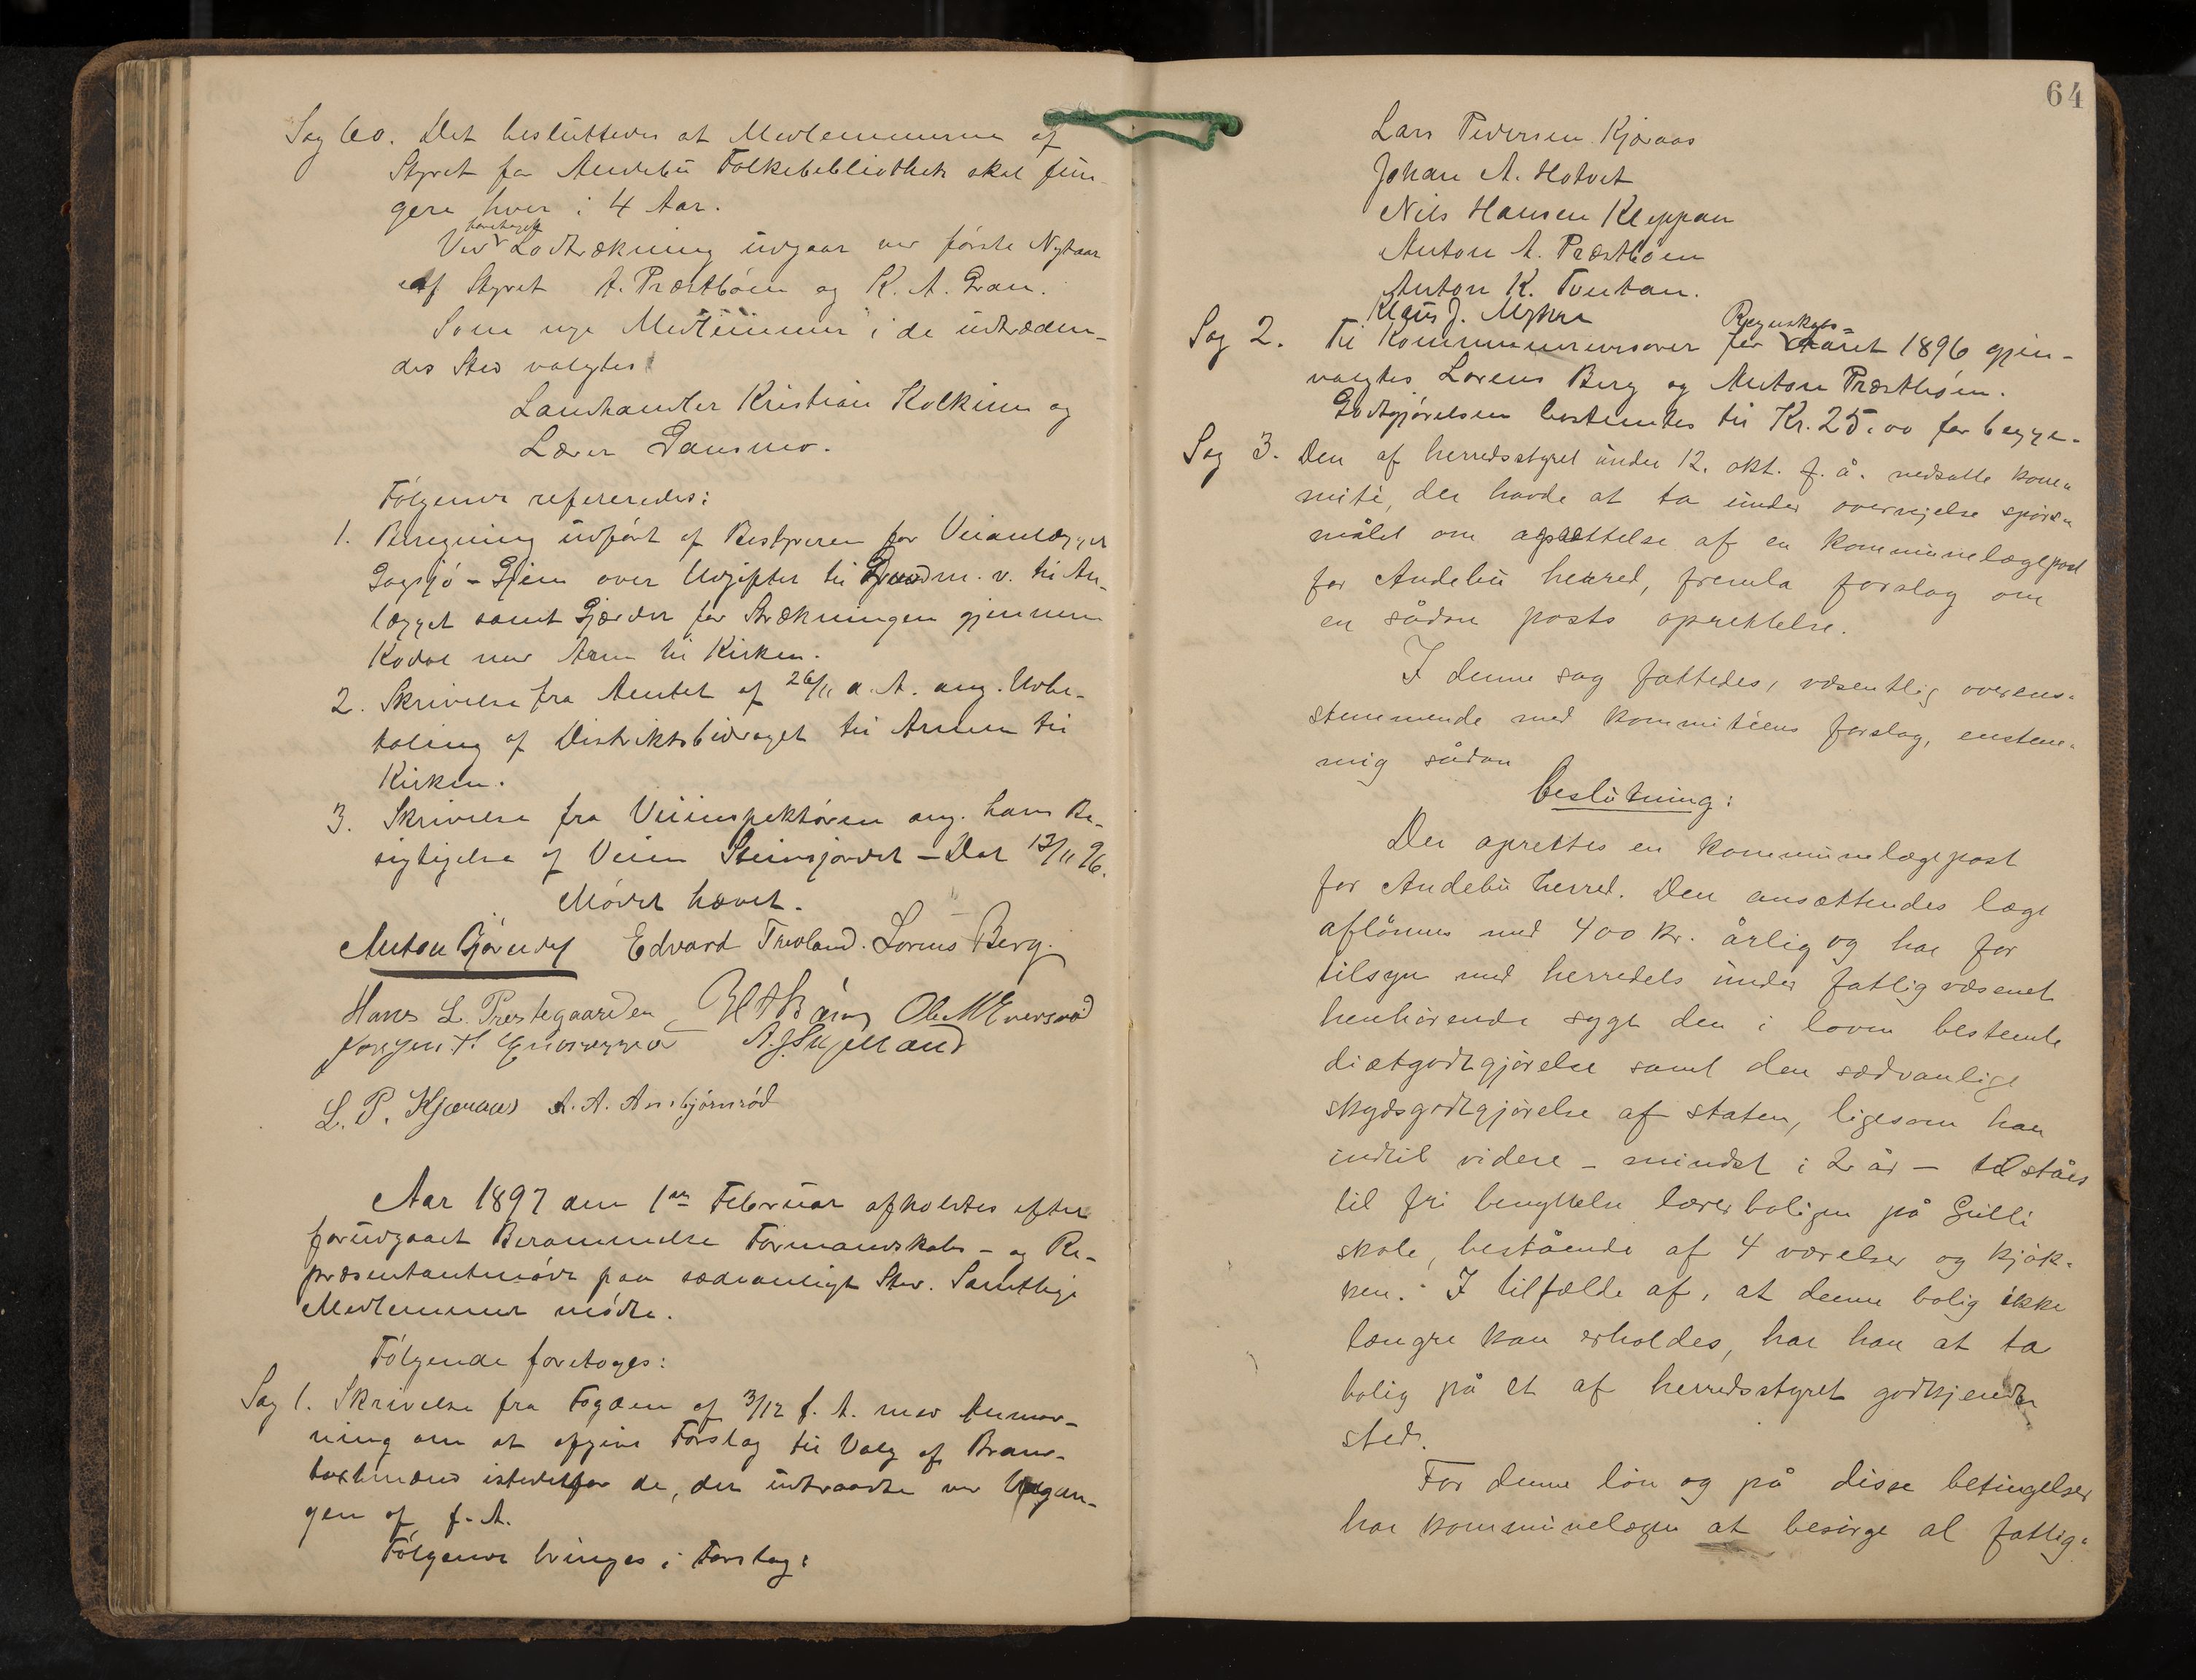 Sag 60. Det besluttedes at Medlemmerne af
Styret for Andebu Folkebibliothek skal fun-
gere hver i 4 Aar.
foretagen
Ved Lodtrækning udgaar ved første Nytaar
af Styret A. Præstbøen og K. A. Gran.
Som nye Medlemmer i de udtræden-
des Sted valgtes
Landhandler Kristian Kolkinn og
Lærer Gansmo.
Følgende refereredes:
1. Beregning udført af Bestyreren for Veianlægget
Gogsjø - Gjein over Udgifter til Grus m. v. til An-
lægget samt Gjærder for Strækningen gjennem
Kodal med Arm til Kirken.
2. Skrivelse fra Amtet af 26/11 d. A. ang. Udbe-
taling af Distriktsbidraget til Armen til
Kirken.
3. Skrivelse fra Veiinspektøren ang. hans Be-
sigtigelse af Veien Steinsjordet - Dal 13/11 96.
Mødet hævet.
Anton Gjerndes Edvard Trevland. Lorens Berg.
Hans L. Prestegaarden Ole M Eversrød
A. J. Skjelland
L. P. Kjæraas A. A. Ansbjørnrød
Aar 1897 den 1ste Februar afholdtes efter
forudgaaet Berammelse Formandskabs- og Re-
præsentantmøde paa sædvanligt Sted. Samtlige
Medlemmer mødte.
Følgende foretoges:
Sag 1. Skrivelse fra Fogden af 3/12 f. A. med Anmod-
ning om at afgive Forslag til Valg af Brand-
takstmænd istedetfor de, der udtraadte ved Udgan-
gen af f. A.
Følgende bringes i Forslag:
64
Lars Pedersen Kjæraas
Johan A. Hotvet
Nils Hansen Kleppan
Anton A. Præstbøen
Anton K. Tventan.
Klaus J. Myhre
Regnskabs-
Sag 2. Til Kommunerevisorer for Aaret 1896 gjen-
valgtes Lorens Berg og Anton Præstbøen.
Godtgjørelsen bestemtes til Kr. 25.00 for begge.
Sag 3. Den af herredsstyret under 12. okt. f. å. nedsatte kom-
mité, der havde at ta under overveielse spørs-
målet om oprettelse af en kommunelægepost
for Andebu herred, fremla forslag om
en sådan posts oprettelse.
I denne sag fattedes, væsentlig overens-
stemmende med kommitéens forslag, enstem-
mig sådan
beslutning:
Der oprettes en kommunelægepost
for Andebu herred. Den ansættendes læge
aflønnes med 400 kr. årlig og har for
tilsyn med herredets under fattigvæsenet
henhørende syge den i loven bestemte
diætgodtgjørelse samt den sædvanlige
skydsgodtgjørelse af staten, ligesom han
indtil videre - mindst i 2 år - tilståes
til fri benyttelse lærerboligen på Gulli
skole, bestående af 4 værelser og kjøk-
ken. I tilfælde af, at denne bolig ikke
længre kan erholdes, har han at ta
bolig på et af herredsstyret godkjendt
sted.
For denne løn og på disse betingelser
har kommunelægen at besørge al fattig-